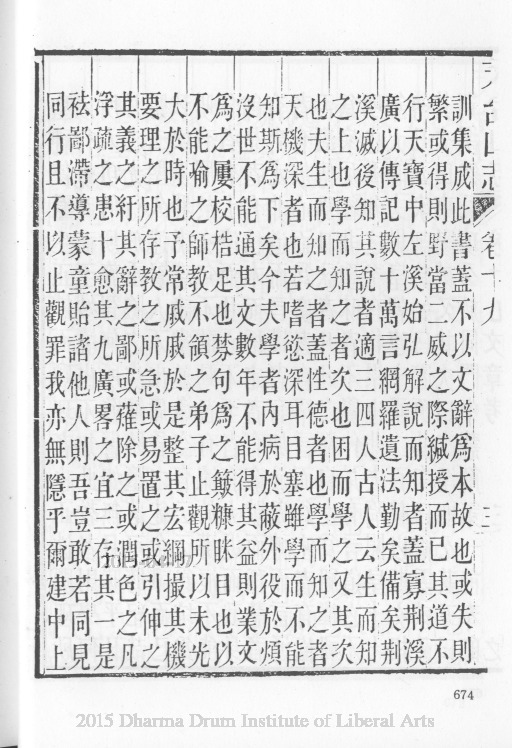 卷十九
訓集成此書蓋不以文辭爲本故也或失則
繁或得則野當二威之際緘授而已其道不
行天寶中左溪始弘解說而知者蓋寡荆溪
廣以傳記數十萬言網羅遺法勤矣備矣荆
溪滅後知其說者適三四人古人云生而知
之上也學而知之者次也困而學之又其次
也夫生而知之者蓋性德者也學而知之者
天機深者也若嗜慾深耳目塞雖學而不能
知斯爲下矣今夫學者内病於蔽外役於煩
沒世不能通其文數年不能得其益則業文
爲之屢校梏足也棼句爲之簸糠眯目也以
不能喻之師教不領之弟子止觀所以未光
大於時也予常戚戚於是整其宏綱撮其機
要理之所存教之所急或易置之或引伸之
其義之紆其辭之鄙或薙除之或潤色之凡
浮疏之患十愈其九廣畧之宜三存其一是
袪鄙滯導蒙童貽諸他人則吾豈敢若同見
同行且不以止觀罪我亦無隱乎爾建中上
674
2015 Dharma Drum Institute of Liberal Arts